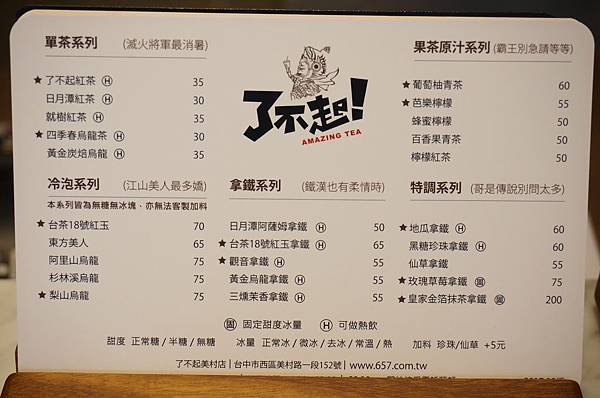 單茶系列 (滅火將軍最消暑)
★ 了不起紅茶 Ⓗ 35
日月潭紅茶 Ⓗ 30
就樹紅茶 Ⓗ 35
★ 四季春烏龍茶 Ⓗ 30
黃金炭焙烏龍 Ⓗ 35
了不起!
AMAZING TEA
果茶原汁系列 (霸王別急請等等)
★ 葡萄柚青茶 60
★ 芭樂檸檬 55
蜂蜜檸檬 50
百香果青茶 50
檸檬紅茶 50
冷泡系列 (江山美人最多嬌)
本系列皆為無糖無冰塊﹐亦無法客製加料
★ 台茶18號紅玉 70
東方美人 65
阿里山烏龍 75
杉林溪烏龍 75
★ 梨山烏龍 75
拿鐵系列 (鐵漢也有柔情時)
日月潭阿薩姆拿鐵 Ⓗ 50
★ 台茶18號紅玉拿鐵 Ⓗ 65
★ 觀音拿鐵 Ⓗ 55
黃金烏龍拿鐵 Ⓗ 55
三燻茉香拿鐵 Ⓗ 55
特調系列 (哥是傳說別問太多)
★ 地瓜拿鐵 Ⓗ 60
黑糖珍珠拿鐵 Ⓗ 60
仙草拿鐵 55
★ 玫瑰草莓拿鐵 固 75
★ 皇家金箔抹茶拿鐵 固 200
固 固定甜度冰量 Ⓗ 可做熱飲
甜度 正常糖 / 半糖 / 無糖 冰量 正常冰 / 微冰 / 去冰 / 常溫 / 熱 加料 珍珠/仙草 +5元
了不起美村店 | 台中市西區美村路一段152號 | www.657.com.tw